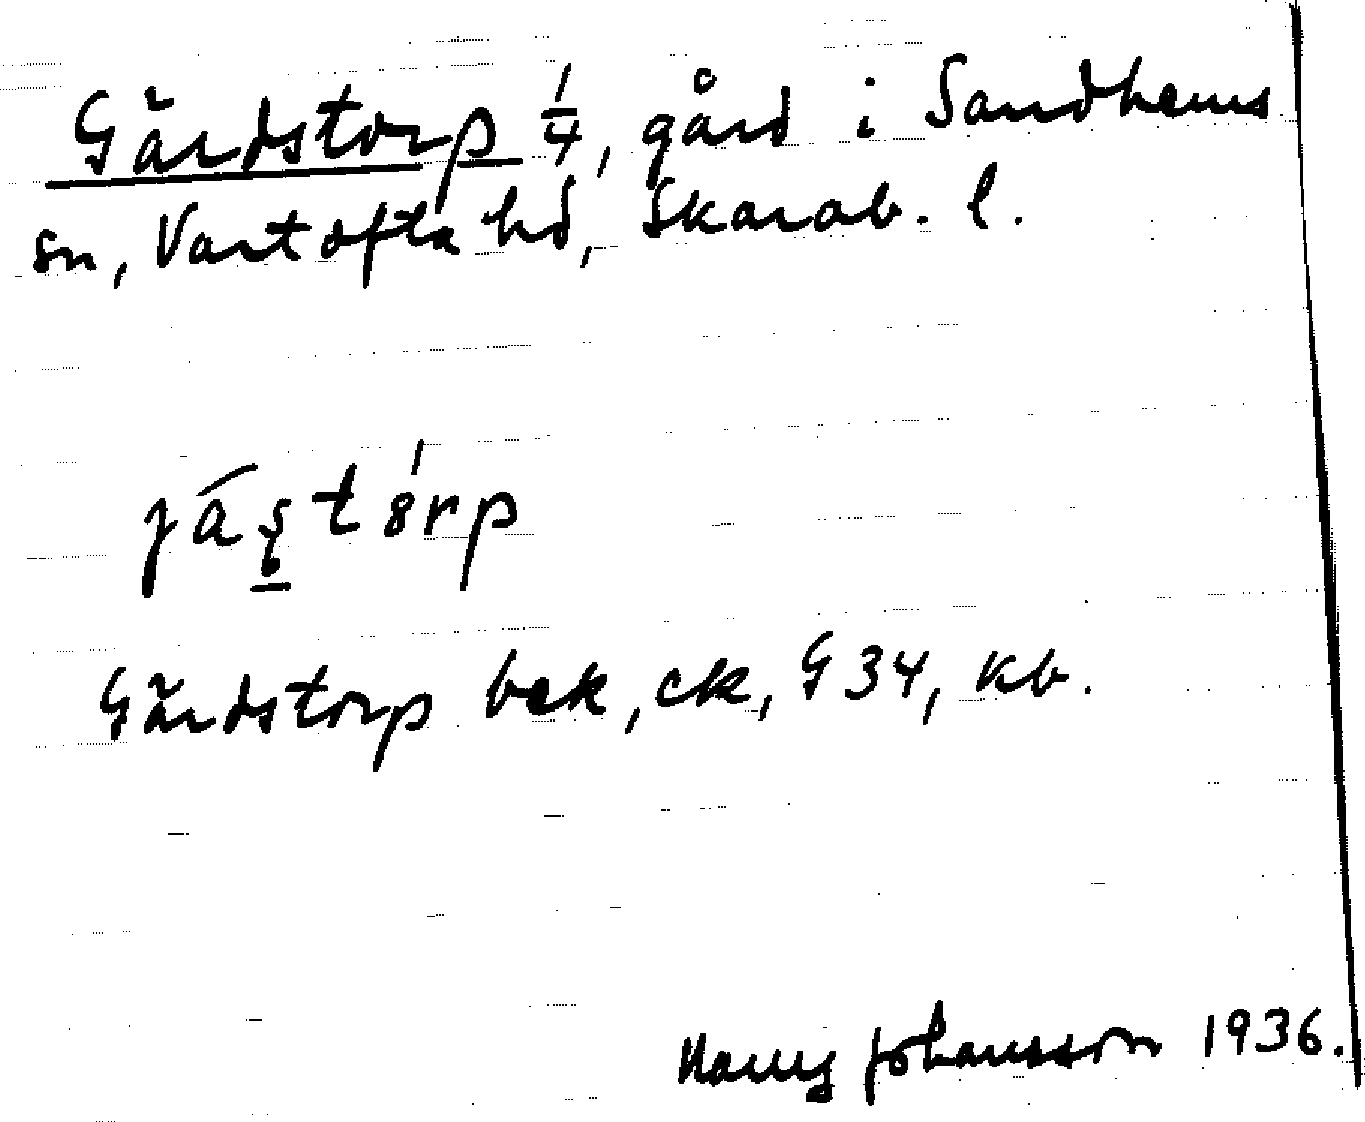 Gärdstorp 1/4, gård i Sandhems
sn, Vartofta hd, Skarab. l.
Gärdstorp bek, ck, G34, kb.
Harry Johansson 1936.